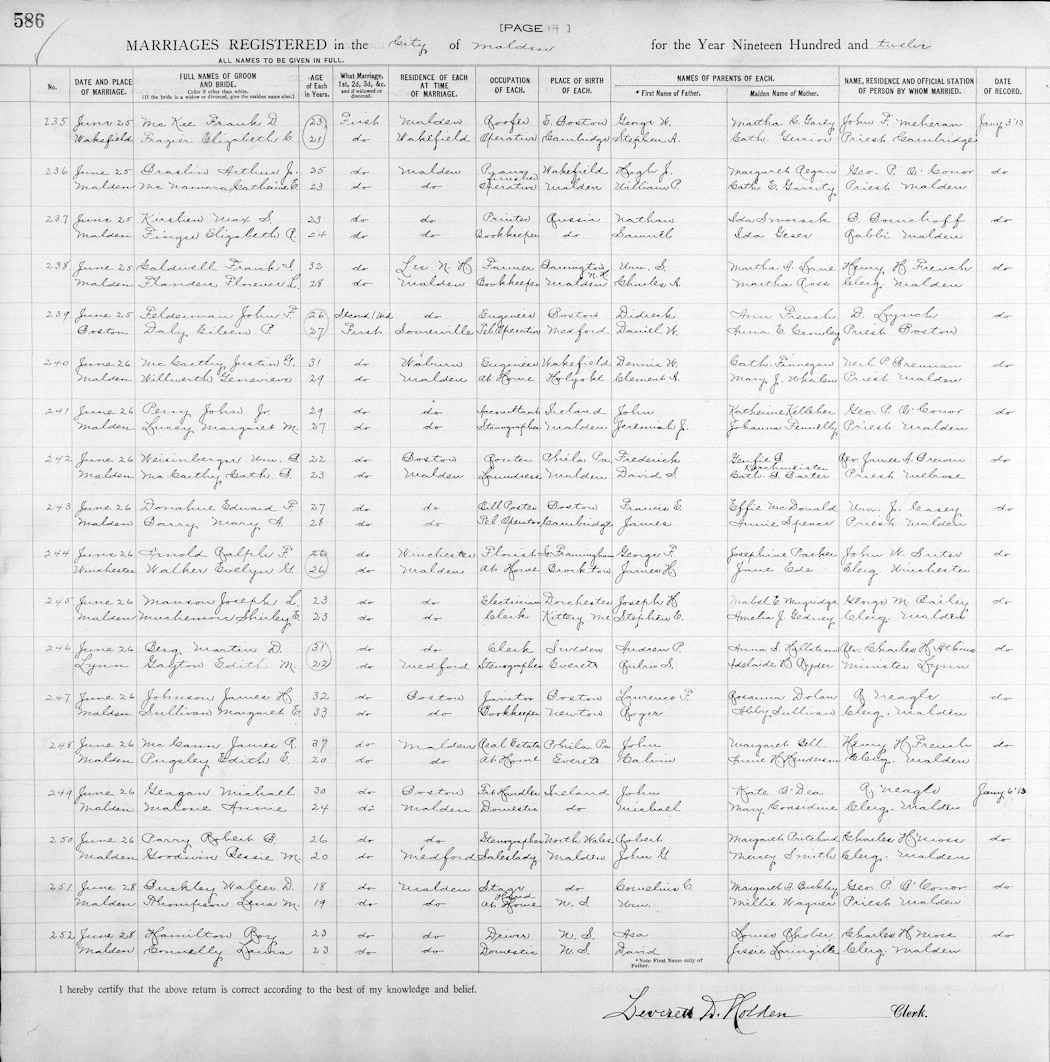 586
[PAGE 14 ]
MARRIAGES REGISTERED in the City of Malden for the Year Nineteen Hundred and twelve
ALL NAMES TO BE GIVEN IN FULL.
No. DATE AND PLACE OF MARRIAGE. FULL NAMES OF GROOM AND BRIDE. Color if other than white. (If the bride is a widow or divorced, give the maiden name also.) AGE of Each in Years. What Marriage, 1st, 2d, 3d, &c. and if widowed or divorced. RESIDENCE OF EACH AT TIME OF MARRIAGE. OCCUPATION OF EACH. PLACE OF BIRTH OF EACH. NAMES OF PARENTS OF EACH. * First Name of Father. Maiden Name of Mother. NAME, RESIDENCE AND OFFICIAL STATION OF PERSON BY WHOM MARRIED. DATE OF RECORD.
235 June 25 McKee Frank D. 23 First Malden Roofer E. Boston George W. Martha C. Garey John F. Meheran Jany 3 '13
Wakefield Frazier Elizabeth C. 21 do Wakefield Operative Cambridge Stephen A. Cath. Priest Cambridge
236 June 25 Arthur J. 25 do Malden Hugh J. Margaret Regan Geo. P. O'Conor do
finisher Wakefield
Malden McNamara Catherine E. 23 do do Operative Malden William P. Cath. E. Garrity Priest Malden
237 June 25 Kirshen Max S. 23 do do Printer Russia Nathan Ida B. do
Malden Elizabeth R. 24 do do Bookkeeper do Samuel Ida Geser Rabbi Malden
238 June 25 Caldwell Frank I. 32 do Lee N. H. Farmer Barrington N.H. Wm. S. Martha A. Lane Henry H. French do
Malden Flanders Florence L. 28 do Malden Bookkeeper Malden Charles A. Martha Ross Clerg. Malden
239 June 25 Felderman John F. 26 Second / Wid do Engineer Boston Ann French D. Lynch do
Boston Daly Eileen P. 27 First Somerville Tel. Operator Medford Daniel W. Anna E. Crowley Priest Boston
240 June 26 McCarthy Justin G. 31 do Woburn Engineer Wakefield Dennis W. Cath. Finnegan Neil P. Brennan do
Malden Willwerth Genevieve 29 do Malden At Home Holyoke Clement A. Mary J. Whalen Priest Malden
241 June 26 Perry John Jr. 29 do do Accountant Ireland John Katherine Kelleher Geo. P. O'Conor do
Malden Lucey Margaret M. 27 do do Stenographer Malden Jeremiah J. Johanna Priest Malden
242 June 26 Weisinberger Wm. B. 22 do Boston Phila Pa. Frederick Rev. James A. Brewin do
Malden McCarthy Cath. B. 23 do Malden Laundress Malden David S. Cath. Carter Priest Melrose
243 June 26 Donahue Edward F. 27 do do Bill Poster Boston Francis E. Effie McDonald Wm. J. Casey do
Malden Barry Mary A. 28 do do Tel. Operator Cambridge James Annie Spence Priest Malden
244 June 26 Arnold Ralph F. 26 do Winchester Florist So. Framingham George F. Josephine Parker John W. Suter do
Winchester Walker Evelyn G. 26 do Malden At Home Brockton James H. Jane Ede Clerg. Winchester
245 June 26 Manson Joseph L. 23 do do Electrician Dorchester Joseph H. Mabel E. Mugridge George M. Bailey do
Malden Muchemore Shirley E. 23 do do Clerk Kittery Me. Stephen E. Amelia J. Gedney Clerg. Malden
246 June 26 Berg Martin D. 31 do do Clerk Sweden Andrew P. Anna S. Rev. Charles H. Atkins do
Lynn Gayton Edith M. 22 do Medford Stenographer Everett Rubin S. Adelaide B. Ryder Minister Lynn
247 June 26 Johnson James H. 32 do Boston Janitor Boston Lawrence F. Rosanna Dolan R. Neagle do
Malden Sullivan Margaret E. 33 do do Bookkeeper Newton Roger Abby Sullivan Clerg. Malden
248 June 26 McCann James R. 37 do Malden Real Estate Phila. Pa John Margaret Bell Henry H. French do
Malden Pugsley Edith E. 20 do do At Home Everett Calvin Annie H. Henderson Clerg. Malden
249 June 26 Geagan Michael 30 do Boston Frt Handler Ireland John Kate O'Dea R. Neagle Jany 6 '13
Malden Malone Annie 24 do Malden Domestic do Michael Mary Considine Clerg. Malden
250 June 26 Parry Robert B. 26 do do Stenographer North Wales Robert Margaret Pritchard Charles H. Moss do
Malden Goodwin Bessie M. 20 do Medford Saleslady Malden John G. Mercy Smith Clerg. Malden
251 June 28 Buckley Walter D. 18 do Malden Stage Hand do Cornelius C. Margaret A. Buckley Geo. P. O'Conor do
Malden Thompson Lena M. 19 do do At Home N. S. Wm. Millie Wagner Priest Malden
252 June 28 Hamilton Roy 23 do do N. S. Asa Louise Charles H. Moss do
Malden Connelly Laura 23 do do Domestic N. S. David Jessie Clerg. Malden
*Note First Name only of Father.
I hereby certify that the above return is correct according to the best of my knowledge and belief.
Leverett D. Holden Clerk.